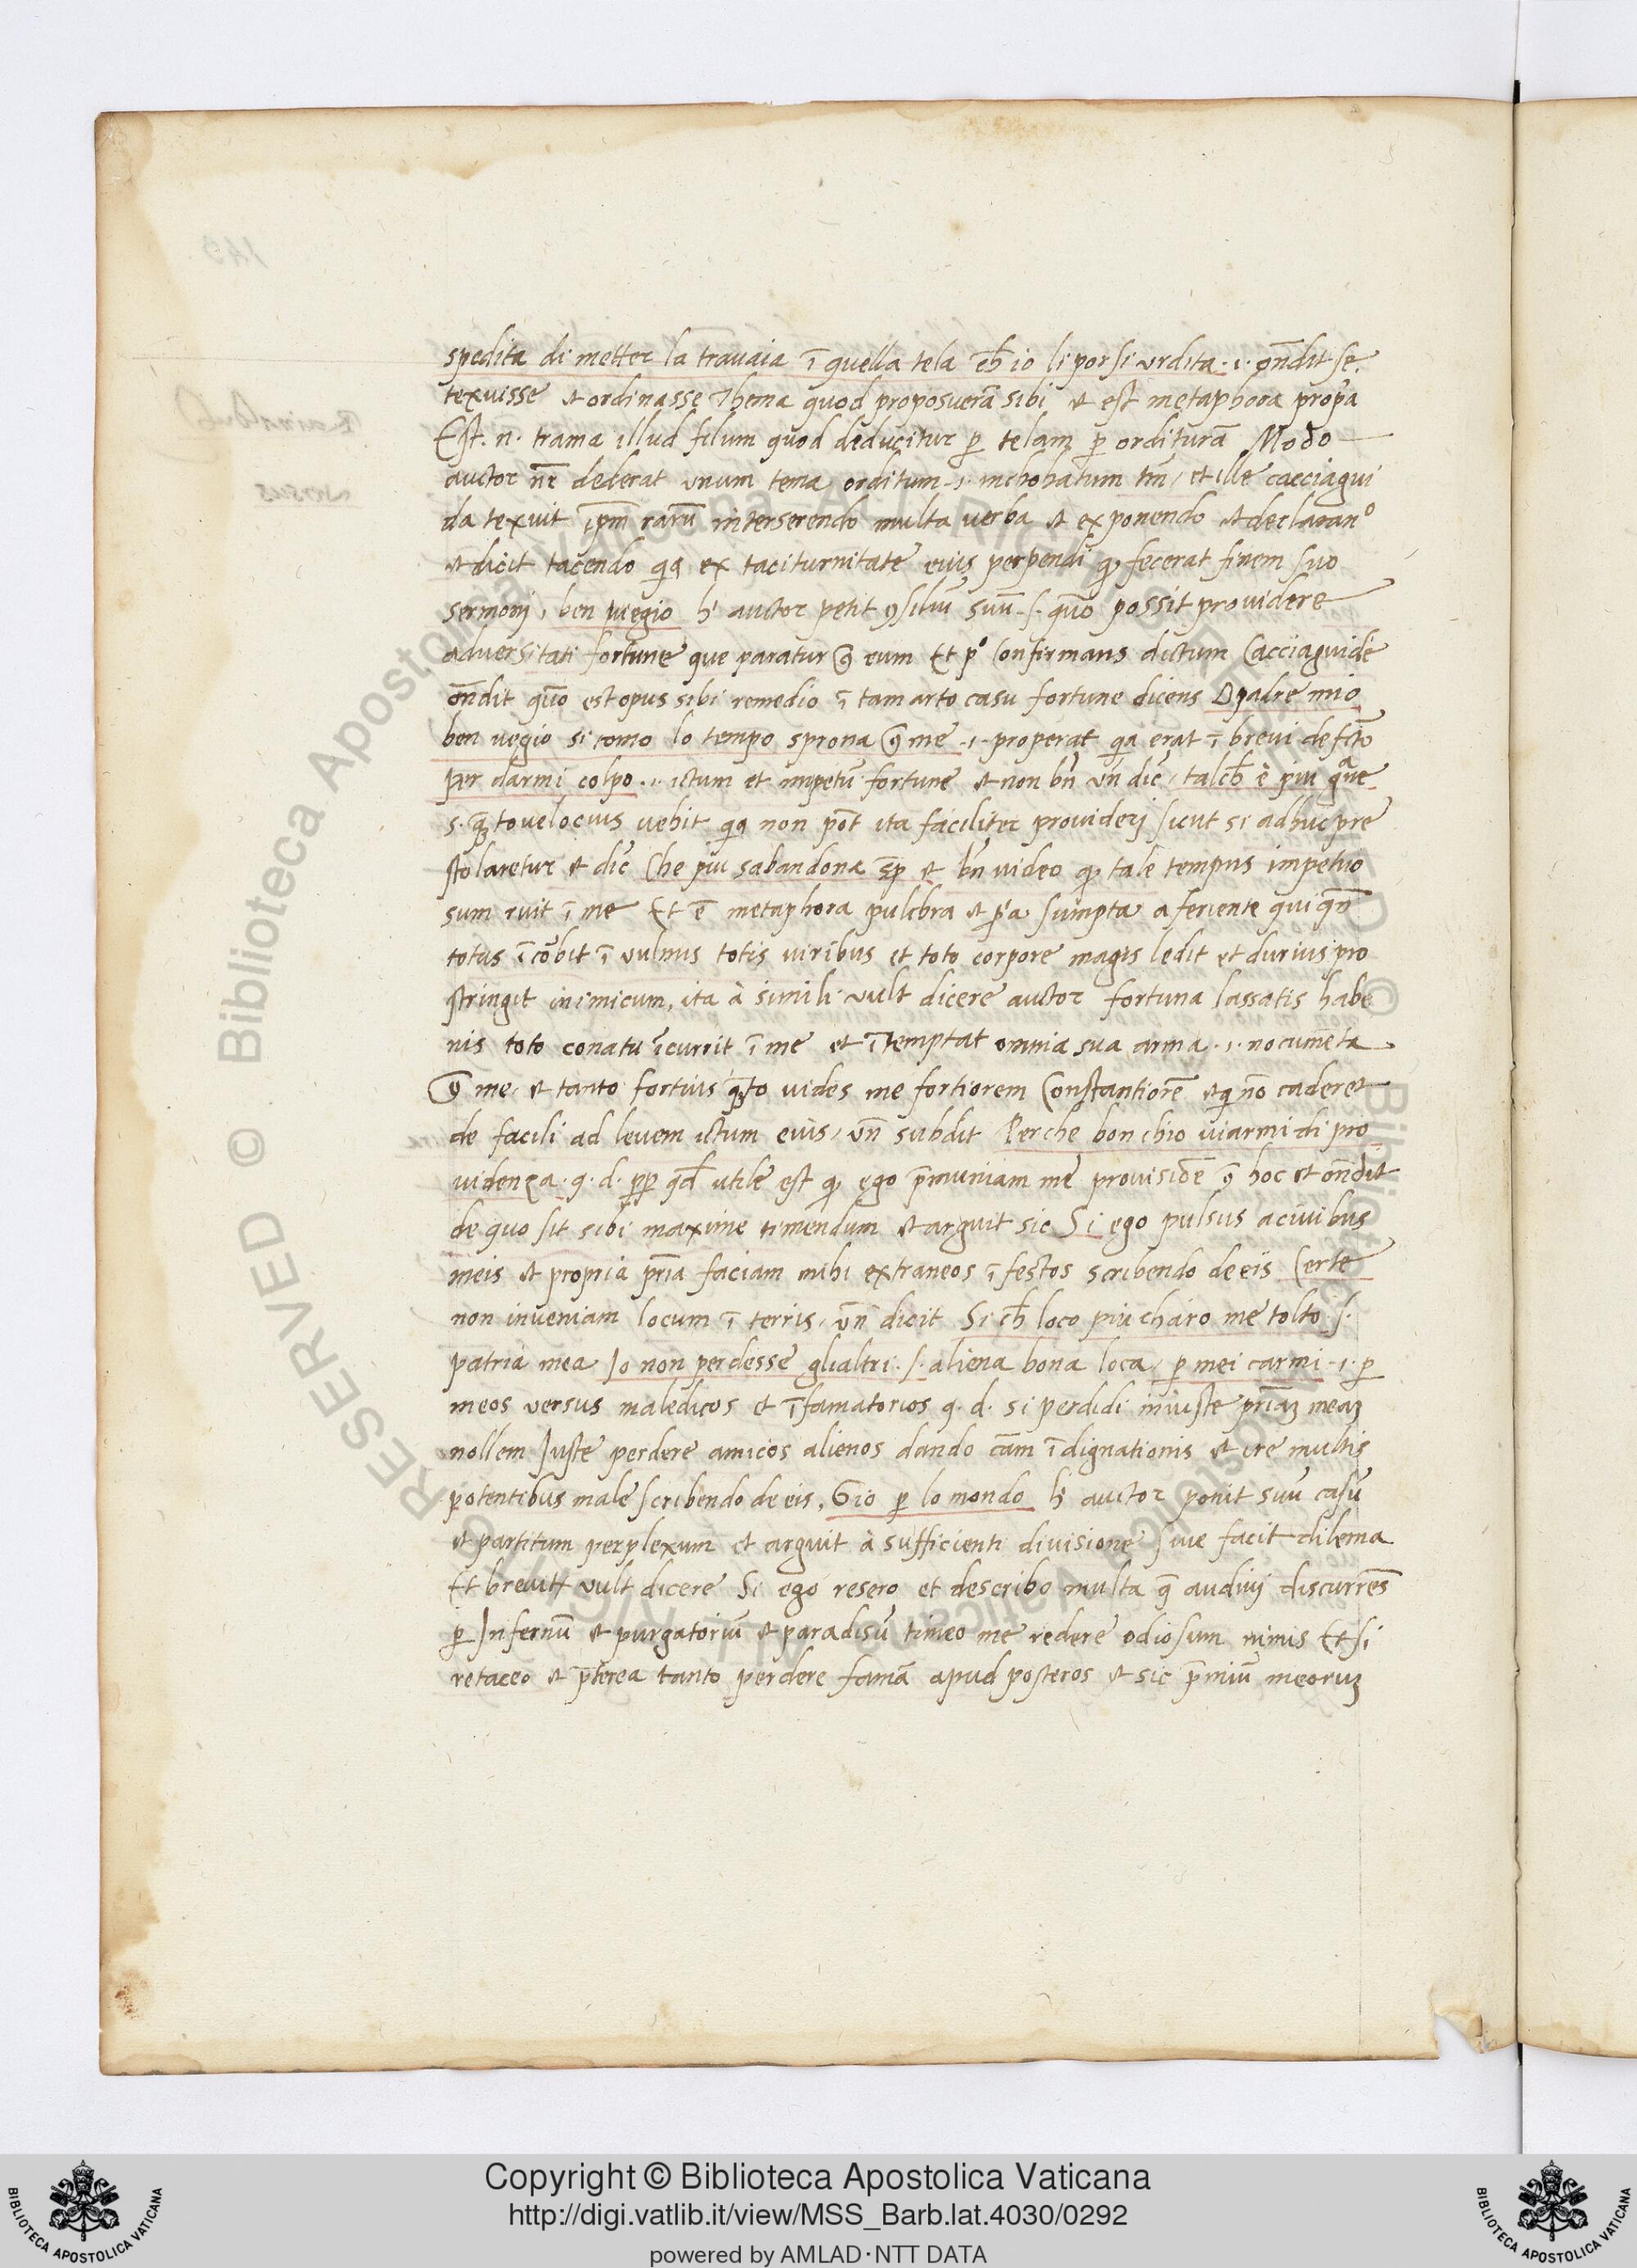 spedita di metter la travaia ī quella tela cħ io li porsi vrdita .i. oñdit se
texuisse et ordinasse Thema quod proposuerā sibi et est metaphora propa
Est. n. trama illud filum quod deducitur p̱ telam p̱ orditurā Modo
auctor nr̄ dederat vnum tema orditum .i. inchohatum tm̄, et ille cacciagui
da texuit ip̄m rarū interserendo multa verba et exponendo et declaranº
et dicit tacendo qa ex taciturnitate eius perpendi ꝙ fecerat finem suo
sermoni, ben vegio h' auctor petit ꝯsiliū suū .s. quō possit providere
adversitati fortune que paratur ꝯ̄ eum Et pº Confirmans dictum Cacciaguide
oñdit quō est opus sibi remedio ī tam arto casu fortune dicens O padre mio
ben vegio si como lo tempo sprona ꝯ̄ me .i. properat qa erat ī brevi
per darmi colpo .i. ictum et impetū fortune et non bn̄ vn̄ dic̄, talcħ è piu gͣue
s. qͣto uelocius uebit qa non pōt ita faciliter provideri sicut si adhuc pre
stolaretur et dic̄ Che piu sabandona et bn̄ video ꝙ tale tempus impetuo
sum ruit ī me Et ē metaphora pulcbra et pͥa sumpta a feriente qui qn̄
totus īcōbit ī vulnus totis viribus et toto corpore magis ledit et durius pro
stringit inimicum, ita à simili vult dicere auctor fortuna lassatis habe
nis toto conatu īcurrit ī me et ītemptat omnia sua arma .i. nocumēta
ꝯ̄ me, et tanto fortius qͣto vides me fortiorem Constantiorē et ꝙ nō caderet
de facili ad levem ictum eius, vn̄ subdit Perche bon chio viarmi di pro
videnza .q. d. utile est ꝙ ego p̄muniam me provisiōe ꝯ̄ hoc et oñdit
de quo sit sibi maxime timendum et arguit sic Si ego pulsus a civibus
meis et propria pr̄ia faciam mihi extraneos īfestos scribendo de eis Certe
non inveniam locum ī terris, vn̄ dicit Si cħ loco piu charo me tolto .s.
patria mea Io non perdesse glialtri .s. aliena bona loca, p̱ mei carmi .i. p̱
meos versus maledicos et īfamatorios q. d. si perdidi iniuste pr̄iaꝫ meaꝫ
nollem Juste perdere amicos alienos dando cām īdignationis et ire multis
potentibus male scribendo de eis, Gio p̱ lo mondo h' auctor ponit suū casū
et partitum perplexum et arguit à sufficienti divisione sive facit dilema
Et breviṫ vult dicere Si ego resero et describo multa q̄ audivi discurrēs
p̱ Infernū et purgatoriū et paradisū timeo me redere odiosum nimis Et si
retaceo et p̄terea tanto perdere famā apud posteros et sic p̄miū meoruꝫ
© Biblioteca Apostolica Vaticana
ALL RIGHTS RESERVED
Copyright © Biblioteca Apostolica Vaticana
http://digi.vatlib.it/view/MSS_Barb.lat.4030/0292
powered by AMLAD·NTT DATA
BIBLIOTECA APOSTOLICA VATICANA
BIBLIOTECA APOSTOLICA VATICANA